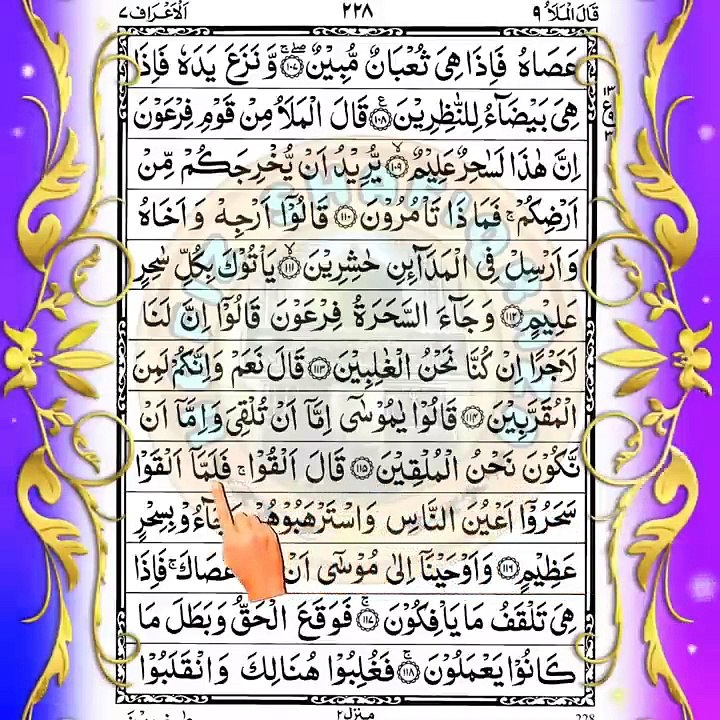 قَالَ الْمَلَاُ ٩ ٢٢٨ اَلْاَعْرَاف ٧
عَصَاهُ فَاِذَا هِیَ ثُعْبَانٌ مُّبِیْنٌ ۝١٠٧ وَّ نَزَعَ یَدَهٗ فَاِذَا
هِیَ بَیْضَآءُ لِلنّٰظِرِیْنَ ۝١٠٨ قَالَ الْمَلَاُ مِنْ قَوْمِ فِرْعَوْنَ
اِنَّ هٰذَا لَسٰحِرٌ عَلِیْمٌ ۝١٠٩ یُّرِیْدُ اَنْ یُّخْرِجَكُمْ مِّنْ
اَرْضِكُمْ ۚ فَمَا ذَا تَاْمُرُوْنَ ۝١١٠ قَالُوْۤا اَرْجِهْ وَ اَخَاهُ
وَ اَرْسِلْ فِی الْمَدَآئِنِ حٰشِرِیْنَ ۝١١١ یَاْتُوْكَ بِكُلِّ سٰحِرٍ
عَلِیْمٍ ۝١١٢ وَ جَآءَ السَّحَرَةُ فِرْعَوْنَ قَالُوْۤا اِنَّ لَنَا
لَاَجْرًا اِنْ كُنَّا نَحْنُ الْغٰلِبِیْنَ ۝١١٣ قَالَ نَعَمْ وَ اِنَّكُمْ لَمِنَ
الْمُقَرَّبِیْنَ ۝١١٤ قَالُوْا یٰمُوْسٰۤی اِمَّاۤ اَنْ تُلْقِیَ وَ اِمَّاۤ اَنْ
نَّكُوْنَ نَحْنُ الْمُلْقِیْنَ ۝١١٥ قَالَ اَلْقُوْا ۚ فَلَمَّاۤ اَلْقَوْا
سَحَرُوْۤا اَعْیُنَ النَّاسِ وَ اسْتَرْهَبُوْهُمْ جَآءُوْ بِسِحْرٍ
عَظِیْمٍ ۝١١٦ وَ اَوْحَیْنَاۤ اِلٰی مُوْسٰۤی اَنْ عَصَاكَ ۚ فَاِذَا
هِیَ تَلْقَفُ مَا یَاْفِكُوْنَ ۝١١٧ فَوَقَعَ الْحَقُّ وَ بَطَلَ مَا
كَانُوْا یَعْمَلُوْنَ ۝١١٨ فَغُلِبُوْا هُنَالِكَ وَ انْقَلَبُوْا
منزل ٢